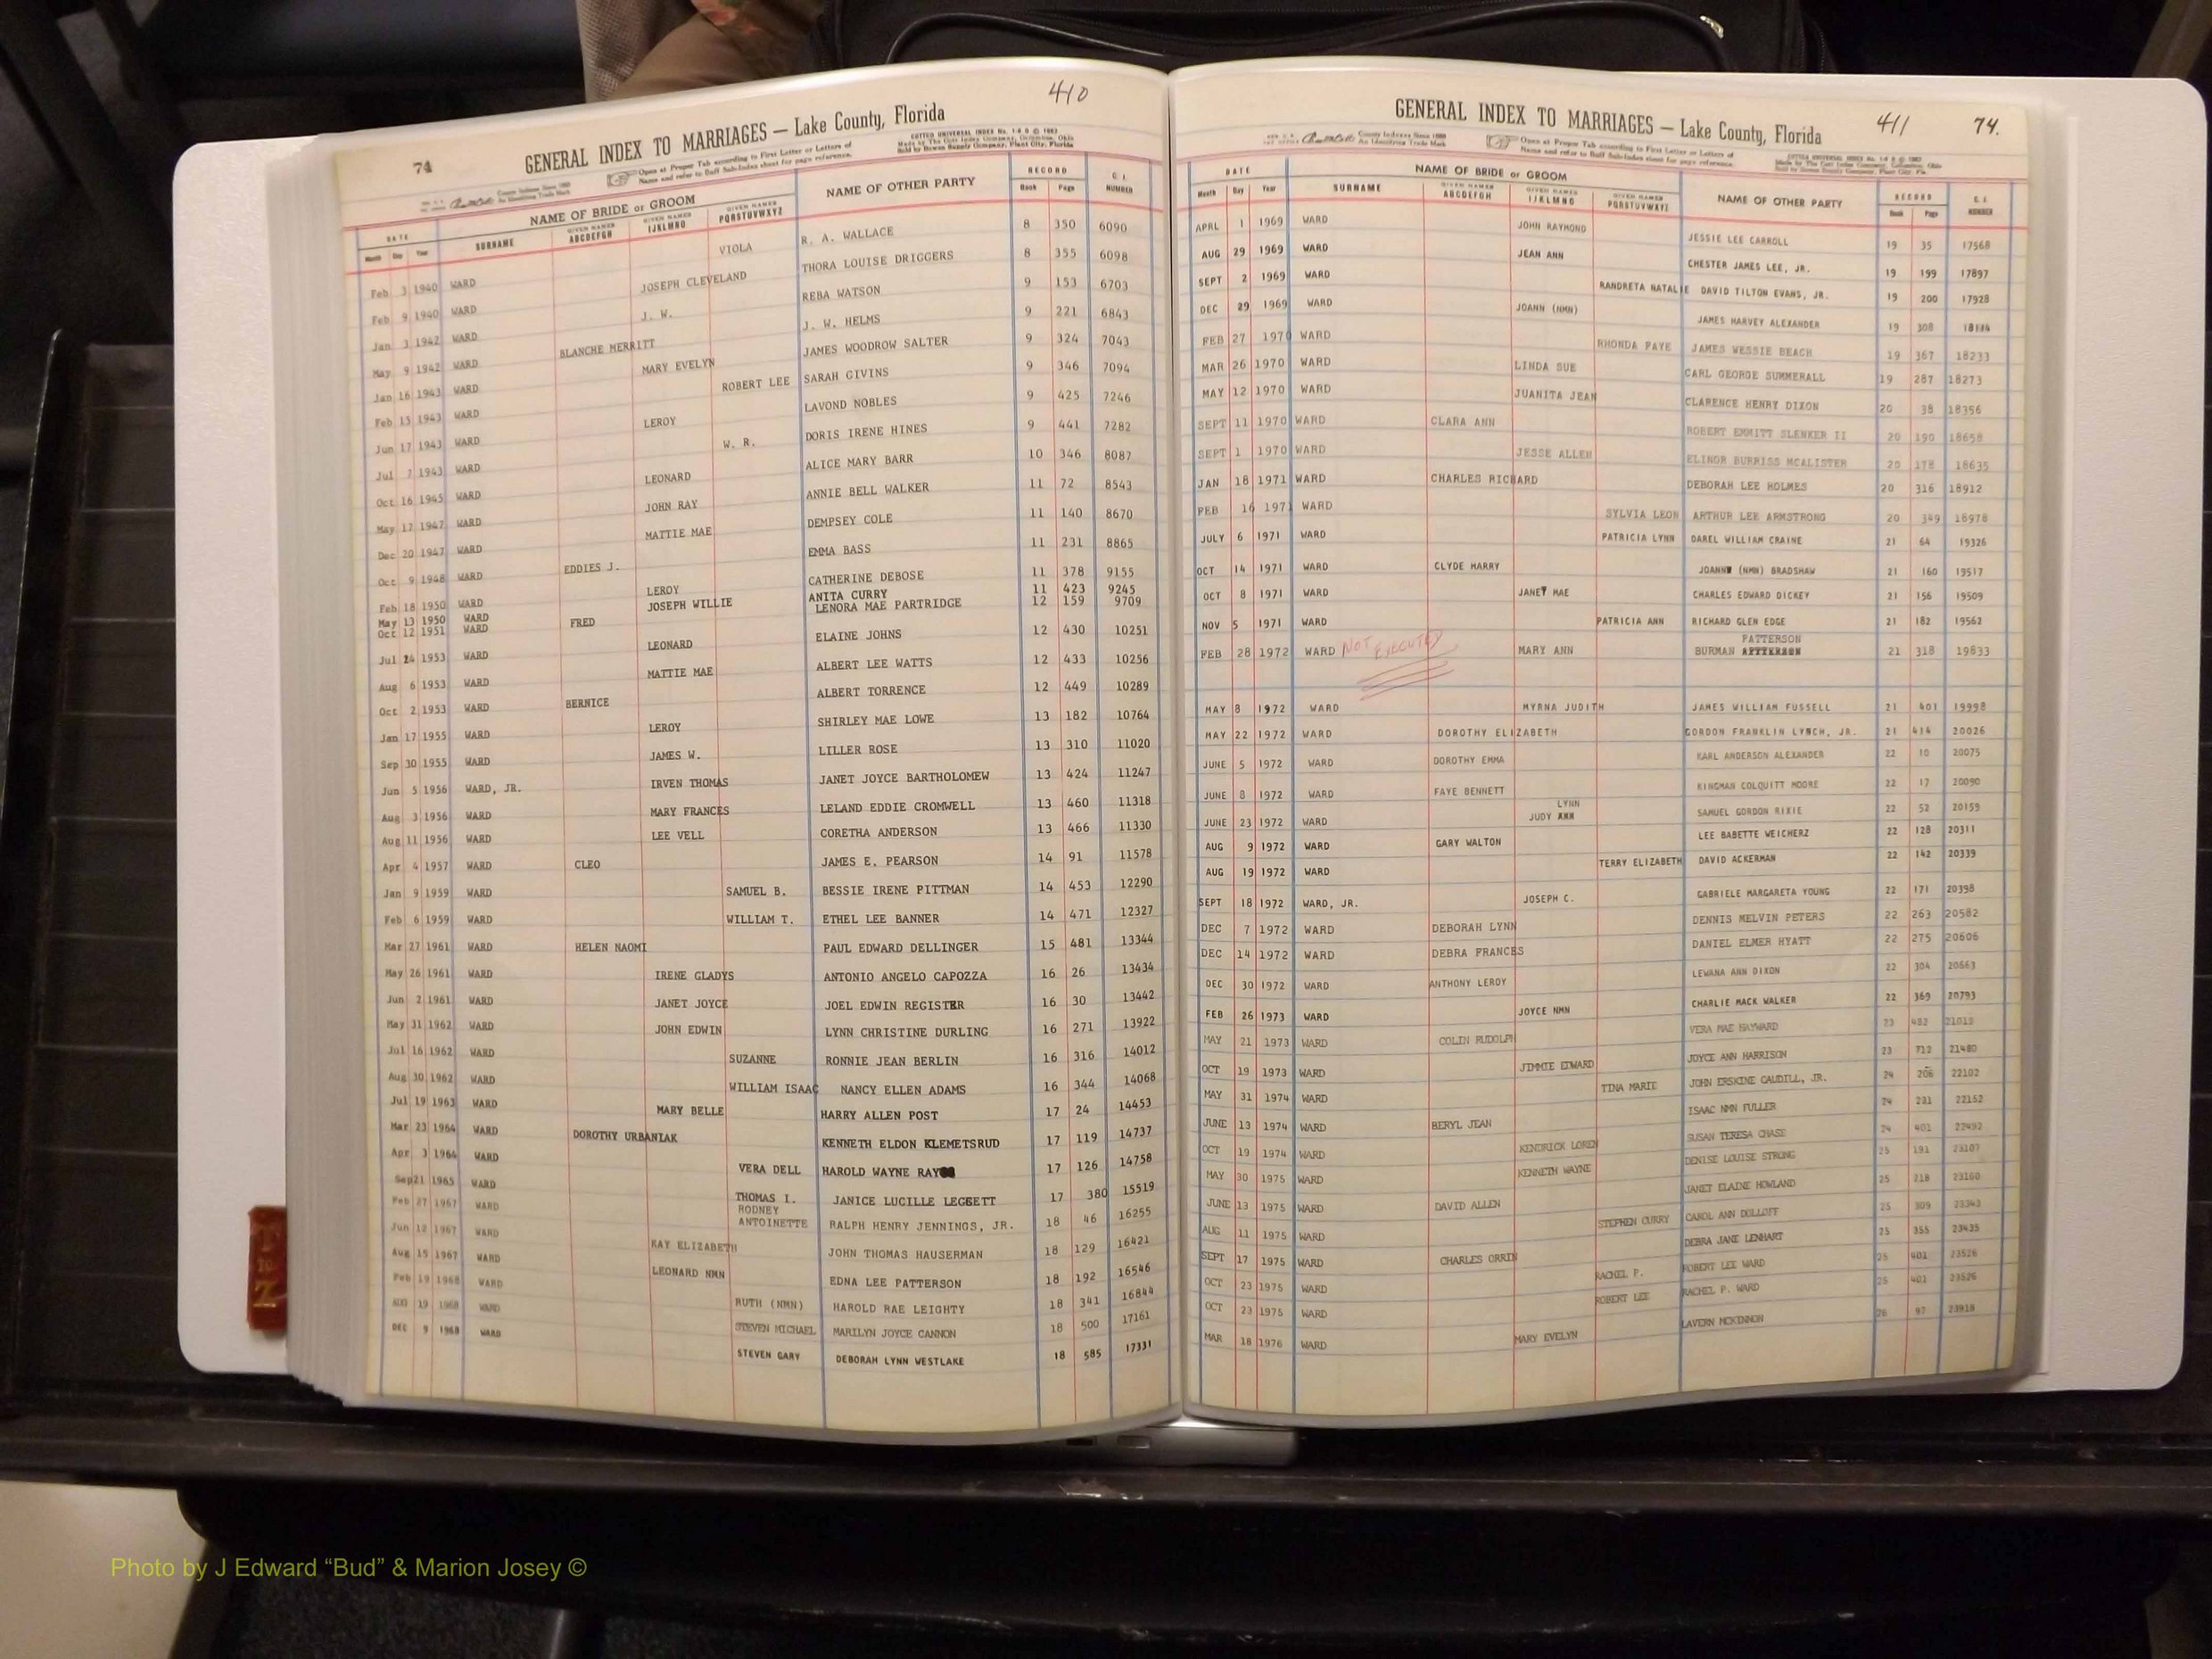 410
74
GENERAL INDEX TO MARRIAGES — Lake County, Florida
County Indexes Since 1888
An Identifying Trade Mark
Open at Proper Tab according to First Letter or Letters of
Name and refer to Buff Sub-Index sheet for page reference.
COTTCO UNIVERSAL INDEX
Made by The Cott Index Company, Columbus, Ohio
Sold by Bowen Supply Company, Plant City, Florida
DATE NAME OF BRIDE or GROOM NAME OF OTHER PARTY RECORD G. I. NUMBER
Month Day Year SURNAME GIVEN NAMES ABCDEFGH GIVEN NAMES IJKLMNO GIVEN NAMES PQRSTUVWXYZ Book Page
Feb 3 1940 WARD VIOLA R. A. WALLACE 8 350 6090
Feb 9 1940 WARD JOSEPH CLEVELAND THORA LOUISE DRIGGERS 8 355 6098
Jan 3 1942 WARD J. W. REBA WATSON 9 153 6703
May 9 1942 WARD BLANCHE MERRITT J. W. HELMS 9 221 6843
Jan 16 1943 WARD MARY EVELYN JAMES WOODROW SALTER 9 324 7043
Feb 15 1943 WARD ROBERT LEE SARAH GIVINS 9 346 7094
Jun 17 1943 WARD LEROY LAVOND NOBLES 9 425 7246
Jul 7 1943 WARD W. R. DORIS IRENE HINES 9 441 7282
Oct 16 1945 WARD LEONARD ALICE MARY BARR 10 346 8087
May 17 1947 WARD JOHN RAY ANNIE BELL WALKER 11 72 8543
Dec 20 1947 WARD MATTIE MAE DEMPSEY COLE 11 140 8670
Oct 9 1948 WARD EDDIES J. EMMA BASS 11 231 8865
Feb 18 1950 WARD LEROY CATHERINE DEBOSE 11 378 9155
May 13 1950 WARD JOSEPH WILLIE ANITA CURRY 11 423 9245
Oct 12 1951 WARD FRED LENORA MAE PARTRIDGE 12 159 9709
Jul 24 1953 WARD LEONARD ELAINE JOHNS 12 430 10251
Aug 6 1953 WARD MATTIE MAE ALBERT LEE WATTS 12 433 10256
Oct 2 1953 WARD BERNICE ALBERT TORRENCE 12 449 10289
Jan 17 1955 WARD LEROY SHIRLEY MAE LOWE 13 182 10764
Sep 30 1955 WARD JAMES W. LILLER ROSE 13 310 11020
Jun 5 1956 WARD, JR. IRVEN THOMAS JANET JOYCE BARTHOLOMEW 13 424 11247
Aug 3 1956 WARD MARY FRANCES LELAND EDDIE CROMWELL 13 460 11318
Aug 11 1956 WARD LEE VELL CORETHA ANDERSON 13 466 11330
Apr 4 1957 WARD CLEO JAMES E. PEARSON 14 91 11578
Jan 9 1959 WARD SAMUEL B. BESSIE IRENE PITTMAN 14 453 12290
Feb 6 1959 WARD WILLIAM T. ETHEL LEE BANNER 14 471 12327
Mar 27 1961 WARD HELEN NAOMI PAUL EDWARD DELLINGER 15 481 13344
May 26 1961 WARD IRENE GLADYS ANTONIO ANGELO CAPOZZA 16 26 13434
Jun 2 1961 WARD JANET JOYCE JOEL EDWIN REGISTER 16 30 13442
May 31 1962 WARD JOHN EDWIN LYNN CHRISTINE DURLING 16 271 13922
Jul 16 1962 WARD SUZANNE RONNIE JEAN BERLIN 16 316 14012
Aug 30 1962 WARD WILLIAM ISAAC NANCY ELLEN ADAMS 16 344 14068
Jul 19 1963 WARD MARY BELLE HARRY ALLEN POST 17 24 14453
Mar 23 1964 WARD DOROTHY URBANIAK KENNETH ELDON KLEMETSRUD 17 119 14737
Apr 3 1964 WARD VERA DELL HAROLD WAYNE RAY 17 126 14758
Sep 21 1965 WARD THOMAS I. JANICE LUCILLE LEGGETT 17 380 15519
Feb 27 1967 WARD RODNEY ANTOINETTE RALPH HENRY JENNINGS, JR. 18 46 16255
Jun 12 1967 WARD KAY ELIZABETH JOHN THOMAS HAUSERMAN 18 129 16421
Aug 15 1967 WARD LEONARD NMN EDNA LEE PATTERSON 18 192 16546
Feb 19 1968 WARD RUTH (NMN) HAROLD RAE LEIGHTY 18 341 16844
AUG 19 1968 WARD STEVEN MICHAEL MARILYN JOYCE CANNON 18 500 17161
DEC 9 1968 WARD STEVEN GARY DEBORAH LYNN WESTLAKE 18 585 17331
GENERAL INDEX TO MARRIAGES — Lake County, Florida
411
74.
County Indexes Since 1888
An Identifying Trade Mark
Open at Proper Tab according to First Letter or Letters of
Name and refer to Buff Sub-Index sheet for page reference.
DATE NAME OF BRIDE or GROOM NAME OF OTHER PARTY RECORD G. I. NUMBER
Month Day Year SURNAME GIVEN NAMES ABCDEFGH GIVEN NAMES IJKLMNO GIVEN NAMES PQRSTUVWXYZ Book Page
APRL 1 1969 WARD JOHN RAYMOND JESSIE LEE CARROLL 19 35 17568
AUG 29 1969 WARD JEAN ANN CHESTER JAMES LEE, JR. 19 199 17897
SEPT 2 1969 WARD RANDRETA NATALIE DAVID TILTON EVANS, JR. 19 200 17928
DEC 29 1969 WARD JOANN (NMN) JAMES HARVEY ALEXANDER 19 308 18114
FEB 27 1970 WARD RHONDA FAYE JAMES WESSIE BEACH 19 367 18233
MAR 26 1970 WARD LINDA SUE CARL GEORGE SUMMERALL 19 287 18273
MAY 12 1970 WARD JUANITA JEAN CLARENCE HENRY DIXON 20 38 18356
SEPT 11 1970 WARD CLARA ANN ROBERT EMMITT SLENKER II 20 190 18658
SEPT 1 1970 WARD JESSE ALLEN ELINOR BURRISS MCALISTER 20 178 18635
JAN 18 1971 WARD CHARLES RICHARD DEBORAH LEE HOLMES 20 316 18912
FEB 16 1971 WARD SYLVIA LEON ARTHUR LEE ARMSTRONG 20 349 18978
JULY 6 1971 WARD PATRICIA LYNN DAREL WILLIAM CRAINE 21 64 19326
OCT 14 1971 WARD CLYDE HARRY JOANN (NMN) BRADSHAW 21 160 19517
OCT 8 1971 WARD JANET MAE CHARLES EDWARD DICKEY 21 156 19509
NOV 5 1971 WARD PATRICIA ANN RICHARD GLEN EDGE 21 182 19562
PATTERSON
FEB 28 1972 WARD NOT EXECUTED MARY ANN BURMAN 21 318 19833
MAY 8 1972 WARD MYRNA JUDITH JAMES WILLIAM FUSSELL 21 401 19998
MAY 22 1972 WARD DOROTHY ELIZABETH GORDON FRANKLIN LYNCH, JR. 21 414 20026
JUNE 5 1972 WARD DOROTHY EMMA KARL ANDERSON ALEXANDER 22 10 20075
JUNE 8 1972 WARD FAYE BENNETT KINGMAN COLQUITT MOORE 22 17 20090
LYNN
JUNE 23 1972 WARD JUDY ANN SAMUEL GORDON RIXIE 22 52 20159
AUG 9 1972 WARD GARY WALTON LEE BABETTE WEICHERZ 22 128 20311
AUG 19 1972 WARD TERRY ELIZABETH DAVID ACKERMAN 22 142 20339
SEPT 18 1972 WARD, JR. JOSEPH C. GABRIELE MARGARETA YOUNG 22 171 20398
DEC 7 1972 WARD DEBORAH LYNN DENNIS MELVIN PETERS 22 263 20582
DEC 14 1972 WARD DEBRA FRANCES DANIEL ELMER HYATT 22 275 20606
DEC 30 1972 WARD ANTHONY LEROY LEWANA ANN DIXON 22 304 20663
FEB 26 1973 WARD JOYCE NMN CHARLIE MACK WALKER 22 369 20793
MAY 21 1973 WARD COLIN RUDOLPH VERA MAE HAYWARD 23 482 21019
OCT 19 1973 WARD JIMMIE EDWARD JOYCE ANN HARRISON 23 712 21480
MAY 31 1974 WARD TINA MARIE JOHN ERSKINE CAUDILL, JR. 24 206 22102
JUNE 13 1974 WARD BERYL JEAN ISAAC NMN FULLER 24 231 22152
OCT 19 1974 WARD KENDRICK LOREN SUSAN TERESA CHASE 24 401 22492
MAY 30 1975 WARD KENNETH WAYNE DENISE LOUISE STRONG 25 191 23107
JUNE 13 1975 WARD DAVID ALLEN JANET ELAINE HOWLAND 25 218 23160
AUG 11 1975 WARD STEPHEN CURRY CAROL ANN DOLLOFF 25 309 23343
SEPT 17 1975 WARD CHARLES ORRIN DEBRA JANE LENHART 25 355 23435
OCT 23 1975 WARD RACHEL P. ROBERT LEE WARD 25 401 23526
OCT 23 1975 WARD ROBERT LEE RACHEL P. WARD 25 401 23526
MAR 18 1976 WARD MARY EVELYN LAVERN MCKINNON 26 97 23918
T TO Z
Photo by J Edward “Bud” & Marion Josey ©